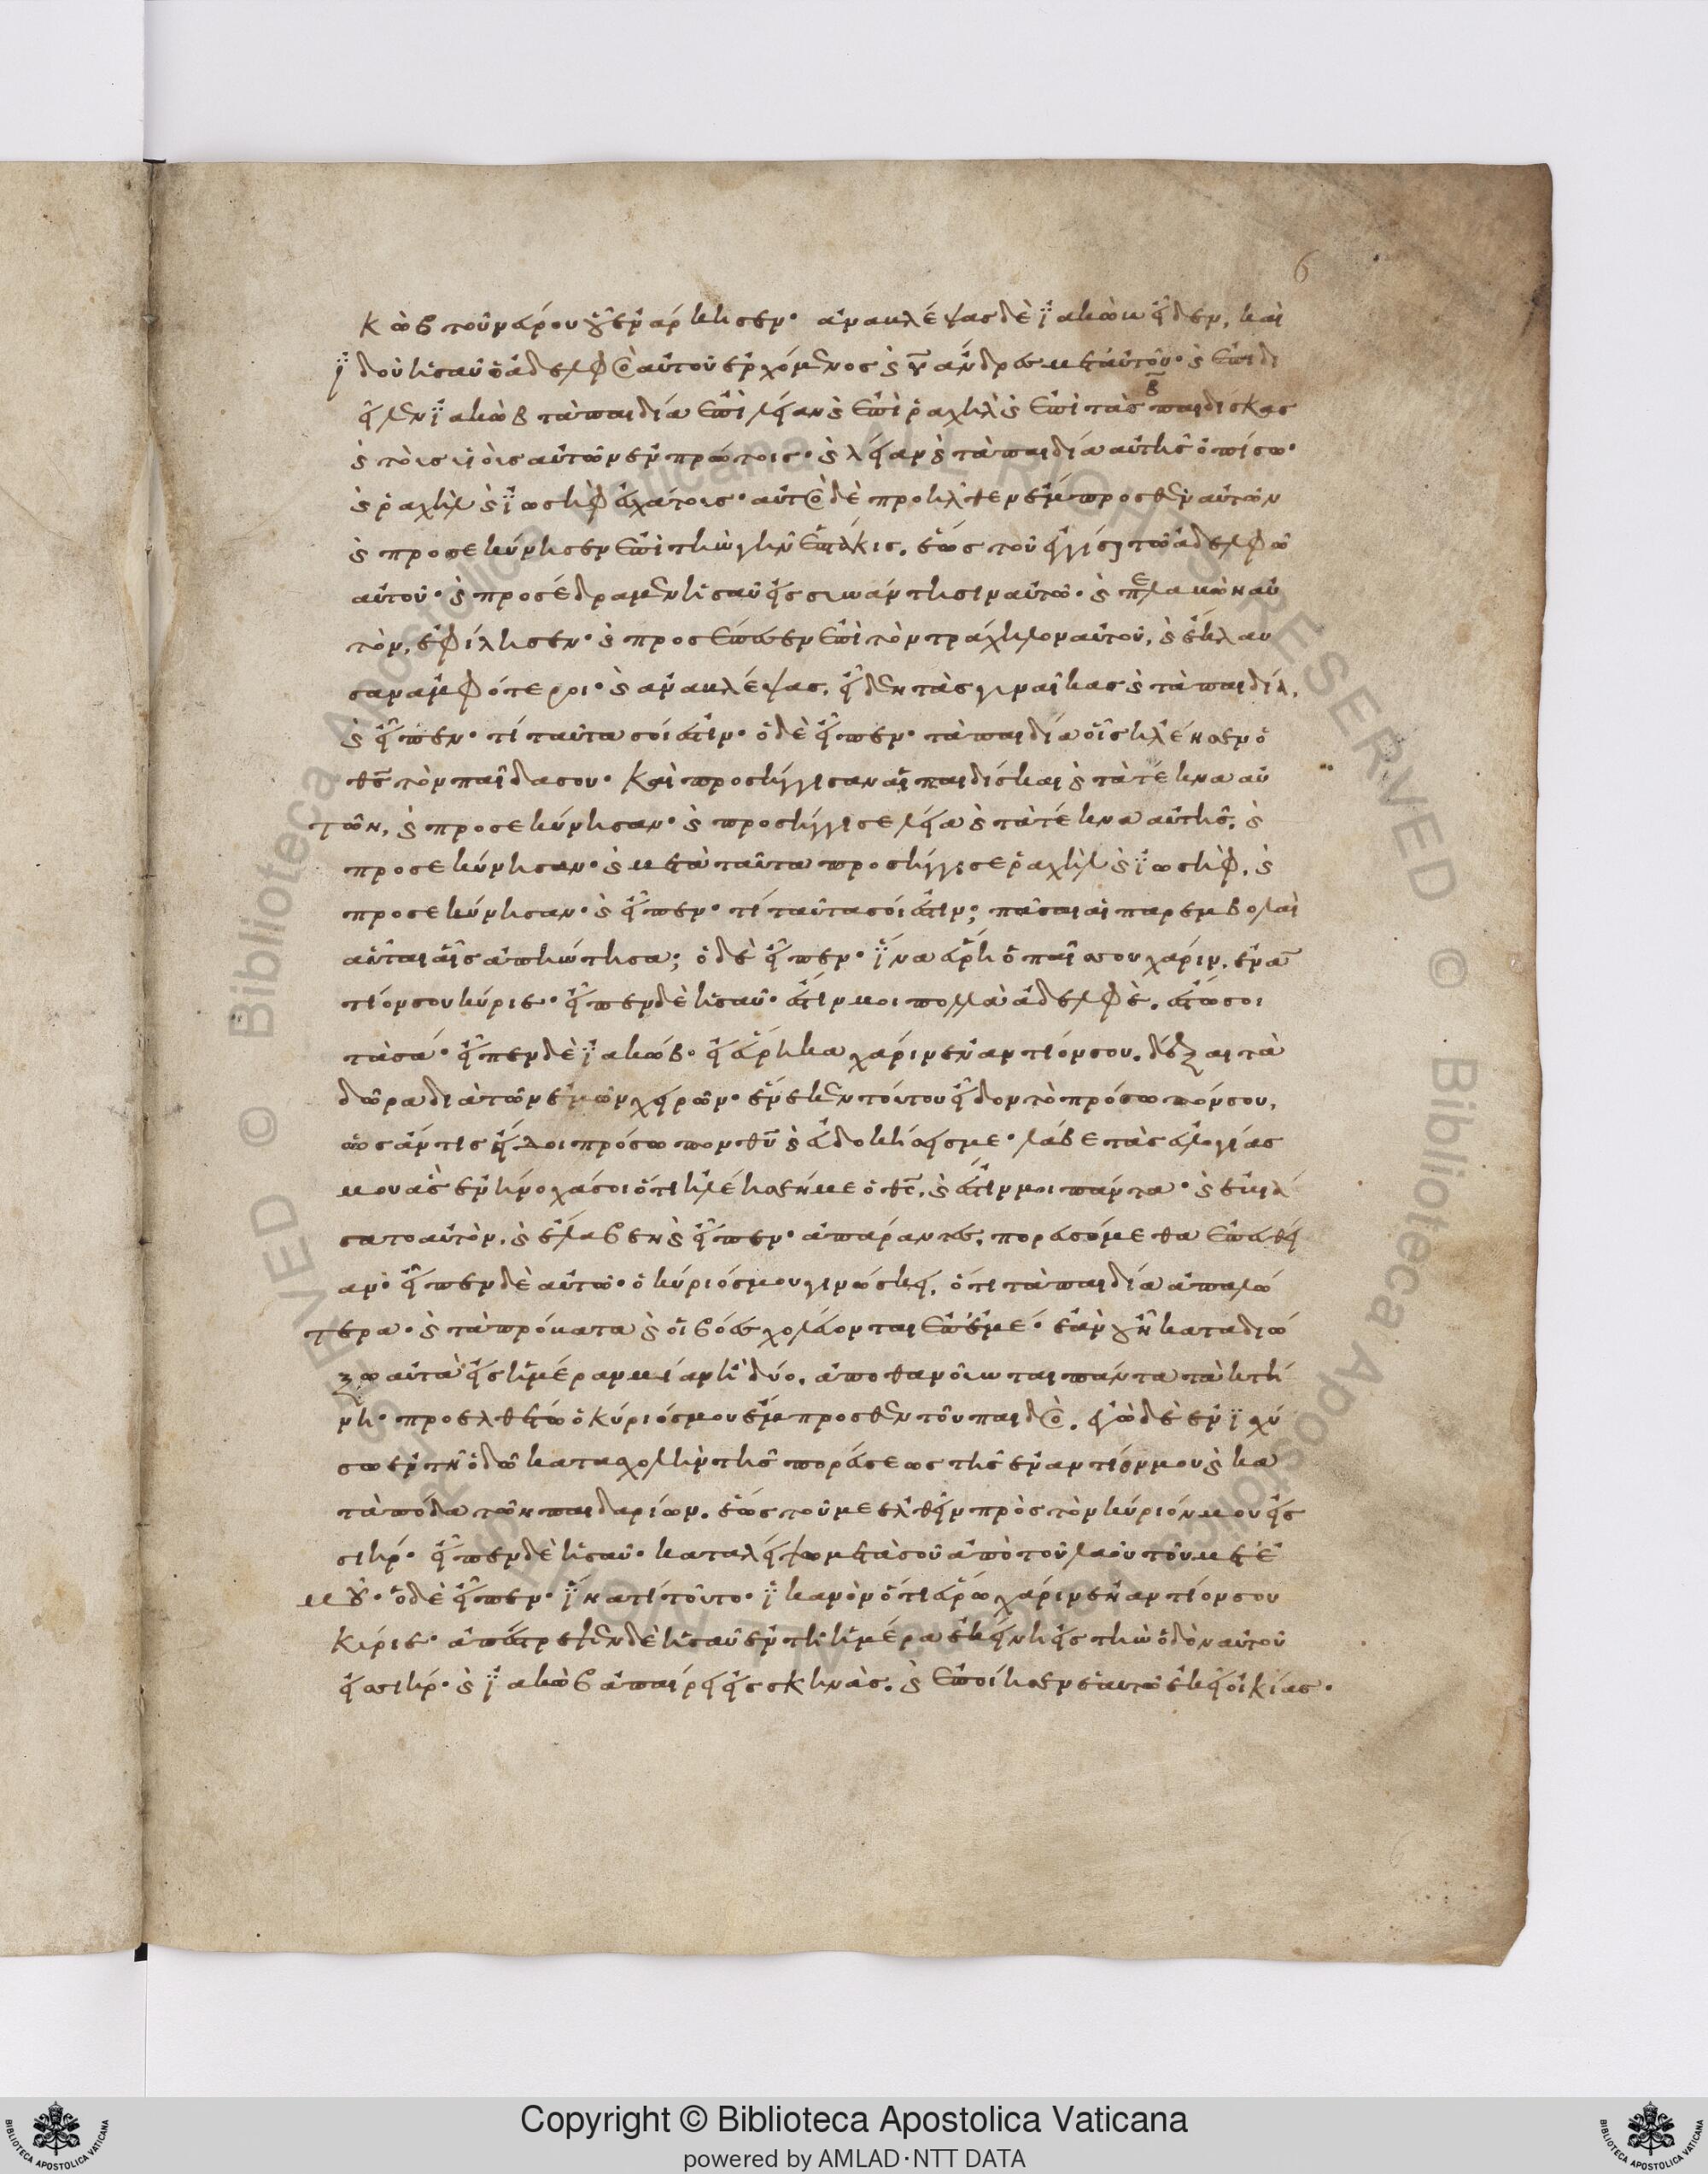 6
κὼβ τοῦ μηροῦ ὃ ἐνάρκησεν· ἀναβλέψας δὲ ἰακὼβ εἶδεν, καὶ
ἰδοὺ ἡσαῦ ὁ ἀδελφὸς αὐτοῦ ἐρχόμενος καὶ υ ἄνδρες μετ' αὐτοῦ· καὶ ἐπιδι
εῖλεν ἰακὼβ τὰ παιδία ἐπὶ λείαν καὶ ἐπὶ ῥαχὴλ καὶ ἐπὶ τὰς β παιδίσκας
καὶ τοῖς υἱοῖς αὐτῶν ἐν πρώτοις· καὶ λείαν καὶ τὰ παιδία αὐτῆς ὀπίσω·
καὶ ῥαχὴλ καὶ ἰωσὴφ ἐσχάτοις· αὐτὸς δὲ προῆλθεν ἔμπροσθεν αὐτῶν
καὶ προσεκύνησεν ἐπὶ τὴν γῆν ἑπτάκις. ἕως τοῦ ἐγγίσαι τῷ ἀδελφῷ
αὐτοῦ· καὶ προσέδραμεν ἡσαῦ εἰς συνάντησιν αὐτῷ· καὶ περιλαβὼν αὐ
τὸν, ἐφίλησεν· καὶ προσέπεσεν ἐπὶ τὸν τράχηλον αὐτοῦ, καὶ ἔκλαυ
σαν ἀμφότεροι· καὶ ἀναβλέψας, εἶδεν τὰς γυναῖκας καὶ τὰ παιδία,
καὶ εἶπεν· τί ταῦτα σοί ἐστιν· ὁ δὲ εἶπεν· τὰ παιδία οἷς ἠλέησεν ὁ
θς τὸν παῖδα σου· Καὶ προσήγγισαν αἱ παιδίσκαι καὶ τὰ τέκνα αὐ
τῶν, καὶ προσεκύνησαν· καὶ προσήγγισε λεία καὶ τὰ τέκνα αὐτῆς, καὶ
προσεκύνησαν· καὶ μετὰ ταῦτα προσήγγισε ῥαχὴλ καὶ ἰωσὴφ, καὶ
προσεκύνησαν· καὶ εἶπεν· τί ταῦτα σοί ἐστιν; πᾶσαι αἱ παρεμβολαὶ
αὗται αἷς ἀπήντησα; ὁ δὲ εἶπεν· ἵνα εὕρῃ ὁ παῖς σου χάριν, ἐναν
τίον σου κύριε· εἶπεν δὲ ἡσαῦ· ἔστιν μοι πολλὰ ἀδελφὲ. ἔστω σοι
τὰ σά· εἶπεν δὲ ἰακώβ· εἰ εὕρηκα χάριν ἐναντίον σου, δέξαι τὰ
δῶρα διὰ τῶν ἐμῶν χειρῶν· ἕνεκεν τούτου εἶδον τὸ πρόσωπόν σου,
ὡς ἄν τις ἴδοι πρόσωπον θυ καὶ εὐδοκήσεις με· λάβε τὰς εὐλογίας
μου ἃς ἐνήνοχά σοι ὅτι ἠλέησέν με ὁ θς, καὶ ἔστιν μοι πάντα· καὶ ἐβιά
σατο αὐτὸν, καὶ ἔλαβεν καὶ εἶπεν· ἀπάραντες, πορευσόμεθα ἐπ' εὐθεῖ
αν· εἶπεν δὲ αὐτῷ· ὁ κύριός μου γινώσκει, ὅτι τὰ παιδία ἁπαλώ
τερα· καὶ τὰ πρόβατα καὶ οἱ βόες λοχεύονται ἐπ' ἐμέ· ἐὰν οὖν καταδιώ
ξω αὐτὰ εἰς ἡμέραν μίαν ἢ δύο, ἀποθανοῦνται πάντα τὰ κτή
νη· προελθέτω ὁ κύριός μου ἔμπροσθεν τοῦ παιδὸς. ἐγὼ δὲ ἐνισχύ
σω ἐν τῇ ὁδῷ κατὰ σχολὴν τῆς πορεύσεως τῆς ἐναντίον μου καὶ κα
τὰ πόδα τῶν παιδαρίων. ἕως τοῦ με ἐλθεῖν πρὸς τὸν κύριόν μου εἰς
σιήρ· εἶπεν δὲ ἡσαῦ· καταλείψω μετὰ σοῦ ἀπὸ τοῦ λαοῦ τοῦ μετ' ἐ
μοῦ· ὁ δὲ εἶπεν· ἵνα τί τοῦτο· ἱκανὸν ὅτι εὗρω χάριν ἐναντίον σου
κύριε· ἀπέστρεψεν δὲ ἡσαῦ ἐν τῇ ἡμέρα ἐκείνη εἰς τὴν ὁδὸν αὐτοῦ
εἰς σιήρ· καὶ ἰακὼβ ἀπαίρει εἰς σκηνάς. καὶ ἐποίησεν ἑαυτῷ ἐκεῖ οἰκίας·
Copyright © Biblioteca Apostolica Vaticana
powered by AMLAD·NTT DATA